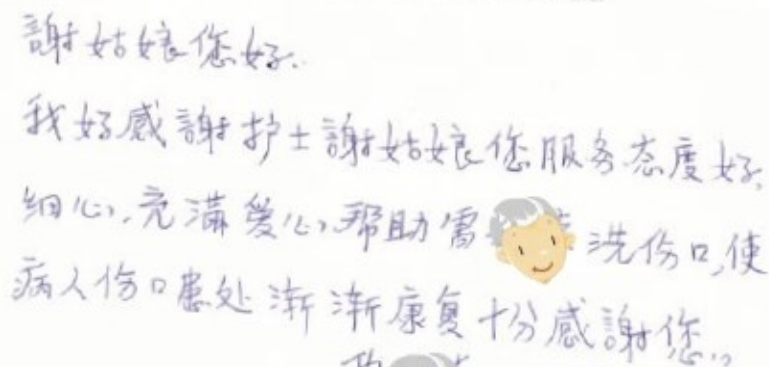 謝姑娘您好.
我好感謝护士謝姑娘您服务态度好,
细心,充滿爱心,帮助需 洗伤口,使
病人伤口患处渐渐康复十分感謝您..